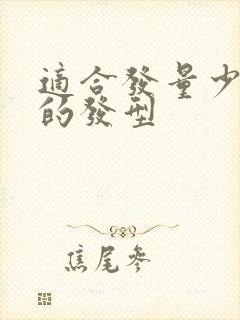 適合發量少
的發型
焦尾參